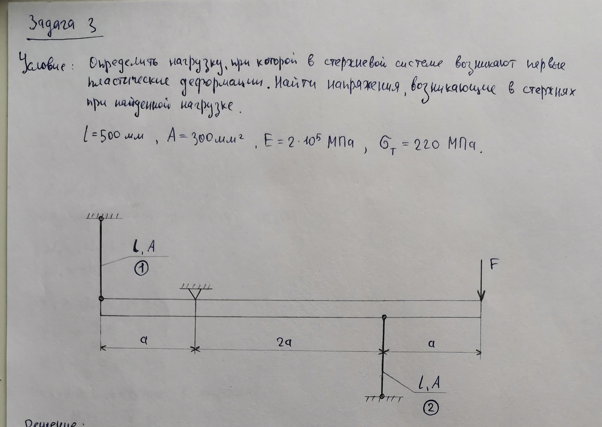 Задача 3
Условие: Определить нагрузку, при которой в стержневой системе возникают первые
пластические деформации. Найти напряжения, возникающие в стержнях
при найденной нагрузке.
l=500 мм, A=300 мм², E=2·10⁵ МПа, σт=220 МПа.
l, A
①
F
a
2a
a
l, A
②
Решение: